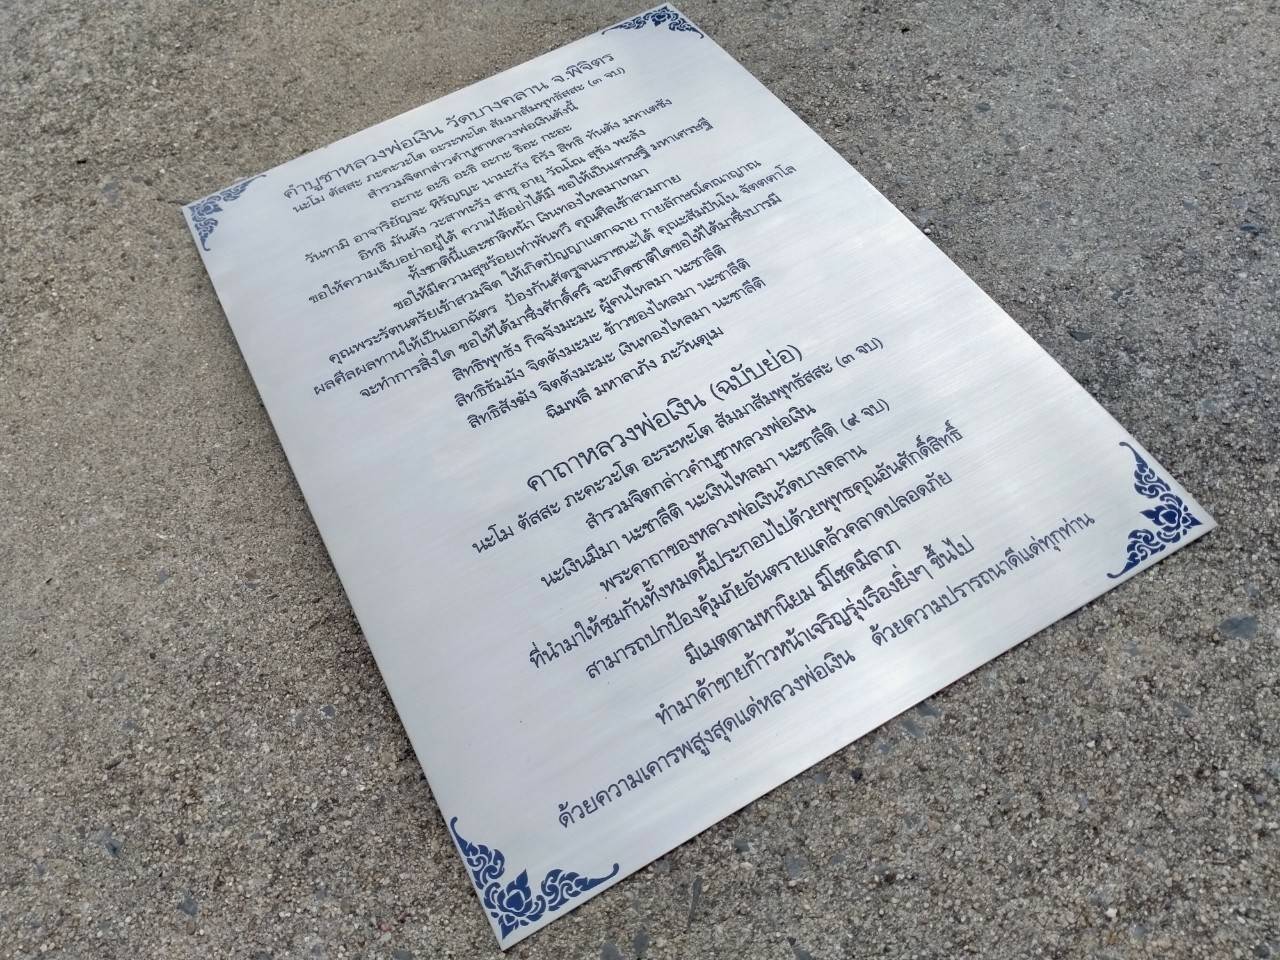 คำบูชาหลวงพ่อเงิน วัดบางคลาน จ.พิจิตร
นะโม ตัสสะ ภะคะวะโต อะระหะโต สัมมาสัมพุทธัสสะ (๓ จบ)
สำรวมจิตกล่าวคำบูชาหลวงพ่อเงินดังนี้
อะกะ อะธิ อะธิ อะกะ ธิอะ กะอะ
วันทามิ อาจาริยัญจะ หิรัญญะ นามะกัง ถิรัง สิทธิ ทันตัง มหาเตชัง
อิทธิ มันตัง วะสาทะรัง สาธุ อายุ วัณโณ สุขัง พะลัง
ขอให้ความเจ็บอย่าอยู่ได้ ความไข้อย่าได้มี ขอให้เป็นเศรษฐี มหาเศรษฐี
ทั้งชาตินี้และชาติหน้า เงินทองไหลมาเทมา
ขอให้มีความสุขร้อยเท่าพันทวี คุณศีลเข้าสวมกาย
คุณพระรัตนตรัยเข้าสวมจิต ให้เกิดปัญญาแตกฉาย กายลักษณ์คณาญาณ
ผลศีลผลทานให้เป็นเอกฉัตร ป้องกันศัตรูจนเราชนะได้ คุณะสัมปันโน จัตตตาโล
จะทำการสิ่งใด ขอให้ได้มาซึ่งศักดิ์ศรี จะเกิดชาติใดขอให้ได้มาซึ่งบารมี
สิทธิพุทธัง กิจจังมะมะ ผู้คนไหลมา นะชาลีติ
สิทธิธัมมัง จิตตังมะมะ ข้าวของไหลมา นะชาลีติ
สิทธิสังฆัง จิตตังมะมะ เงินทองไหลมา นะชาลีติ
ฉิมพลี มหาลาภัง ภะวันตุเม
คาถาหลวงพ่อเงิน (ฉบับย่อ)
นะโม ตัสสะ ภะคะวะโต อะระหะโต สัมมาสัมพุทธัสสะ (๓ จบ)
สำรวมจิตกล่าวคำบูชาหลวงพ่อเงิน
นะเงินมีมา นะชาลีติ นะเงินไหลมา นะชาลีติ (๙ จบ)
พระคาถาของหลวงพ่อเงินวัดบางคลาน
ที่นำมาให้ชมกันทั้งหมดนี้ประกอบไปด้วยพุทธคุณอันศักดิ์สิทธิ์
สามารถปกป้องคุ้มภัยอันตรายแคล้วคลาดปลอดภัย
มีเมตตามหานิยม มีโชคมีลาภ
ทำมาค้าขายก้าวหน้าเจริญรุ่งเรืองยิ่งๆ ขึ้นไป
ด้วยความเคารพสูงสุดแด่หลวงพ่อเงิน ด้วยความปรารถนาดีแด่ทุกท่าน